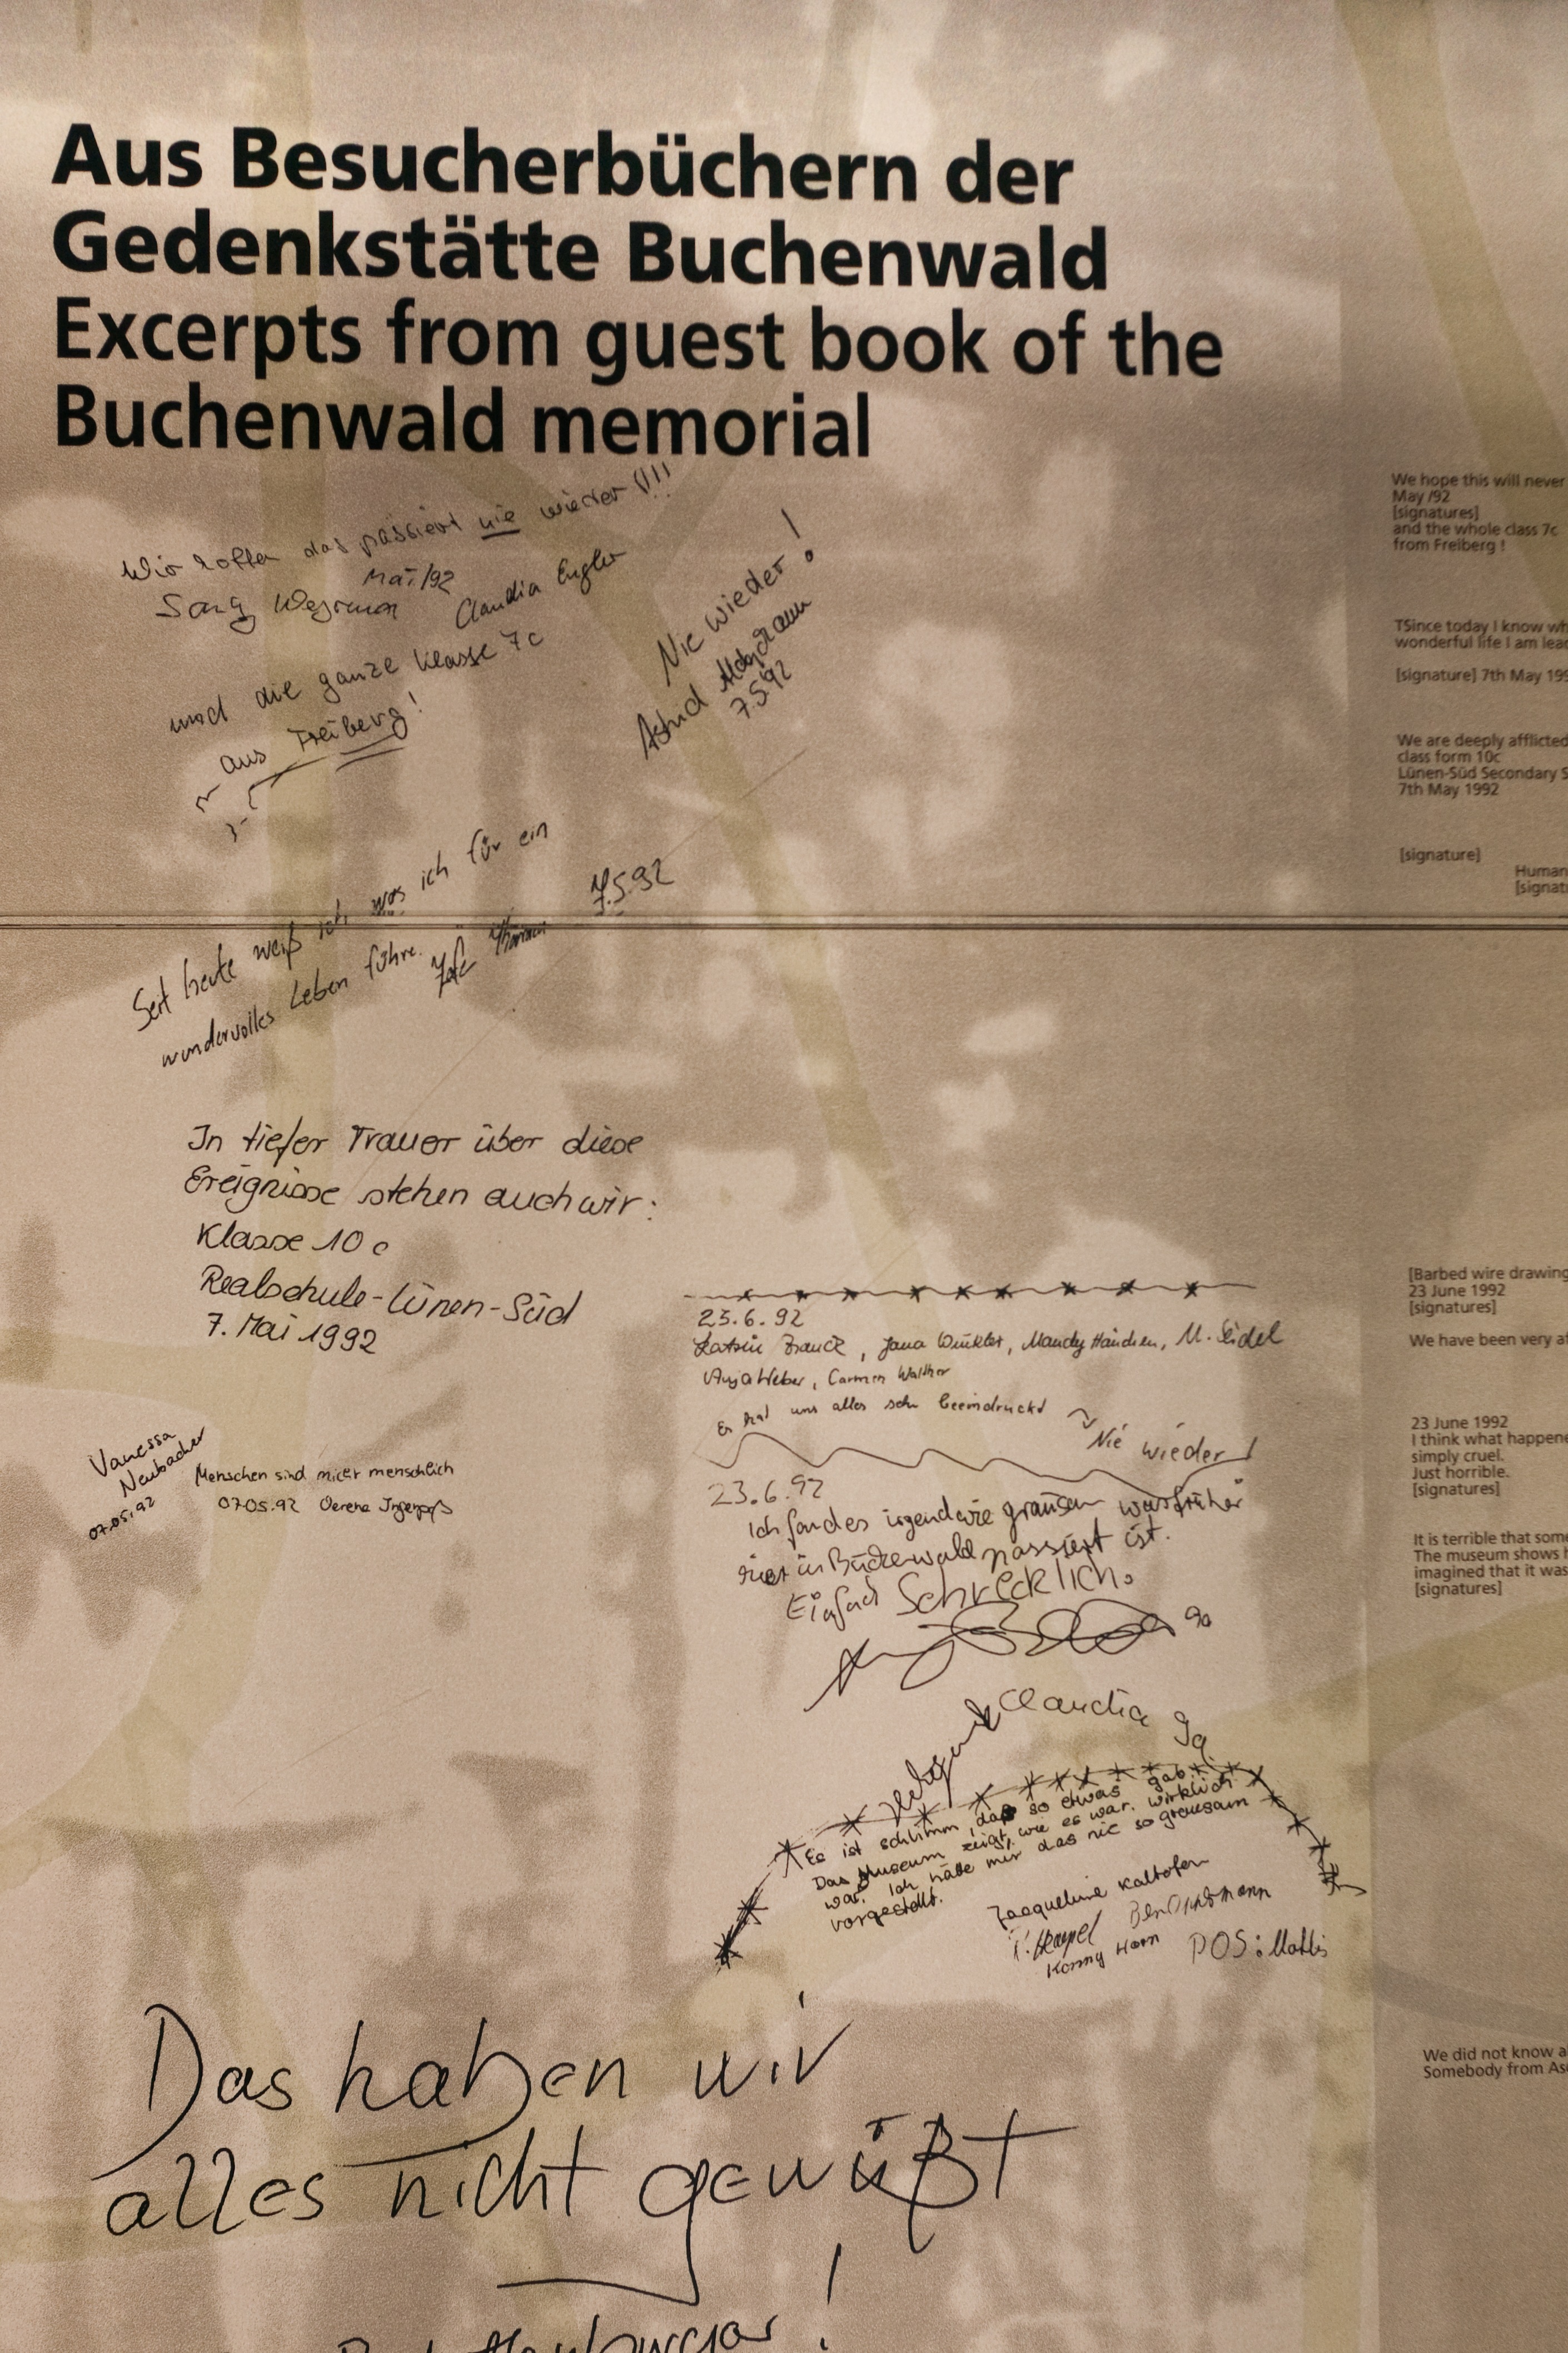 Aus Besucherbüchern der
Gedenkstätte Buchenwald
Excerpts from guest book of the
Buchenwald memorial
Wir hoffen das passiert nie wieder !!!
Mai/92
Claudia Engler
und die ganze Klasse 7c
aus Freiberg!
Nie wieder!
Astrid
7.5.92
Seit heute weiß ich, was ich für ein
wundervolles Leben führe.
7.5.92
In tiefer Trauer über diese
Ereignisse stehen auch wir:
Klasse 10c
Realschule-Lünen-Süd
7. Mai 1992
Vanessa
Neubacher
07.05.92
Menschen sind nicht menschlich
07.05.92 Verena
23.6.92
Katrin Franck, Jana Winkler, Mandy Hänchen, M. Seidel
Anja Weber, Carmen Walther
Es hat uns alles sehr beeindruckt
Nie wieder!
23.6.92
Ich fand es irgendwie grausam was früher
hier in Buchenwald passiert ist.
Einfach Schrecklich.
9a
Claudia 9a
Es ist schlimm, daß so etwas gab.
Das Museum zeigt, wie es war. wirklich
war. Ich hätte mir das nie so grausam
vorgestellt.
Jacqueline Kaltofen
Konny Horn
POS:
Das haben wir
alles nicht gewüßt
!
We hope this will never
May /92
[signatures]
and the whole class 7c
from Freiberg !
TSince today I know wh
wonderful life I am lea
[signature] 7th May 199
We are deeply afflicted
class form 10c
Lünen-Süd Secondary S
7th May 1992
[signature]
Human
[signat
[Barbed wire drawing
23 June 1992
[signatures]
We have been very af
23 June 1992
I think what happene
simply cruel.
Just horrible.
[signatures]
It is terrible that some
The museum shows h
imagined that it was
[signatures]
We did not know a
Somebody from As